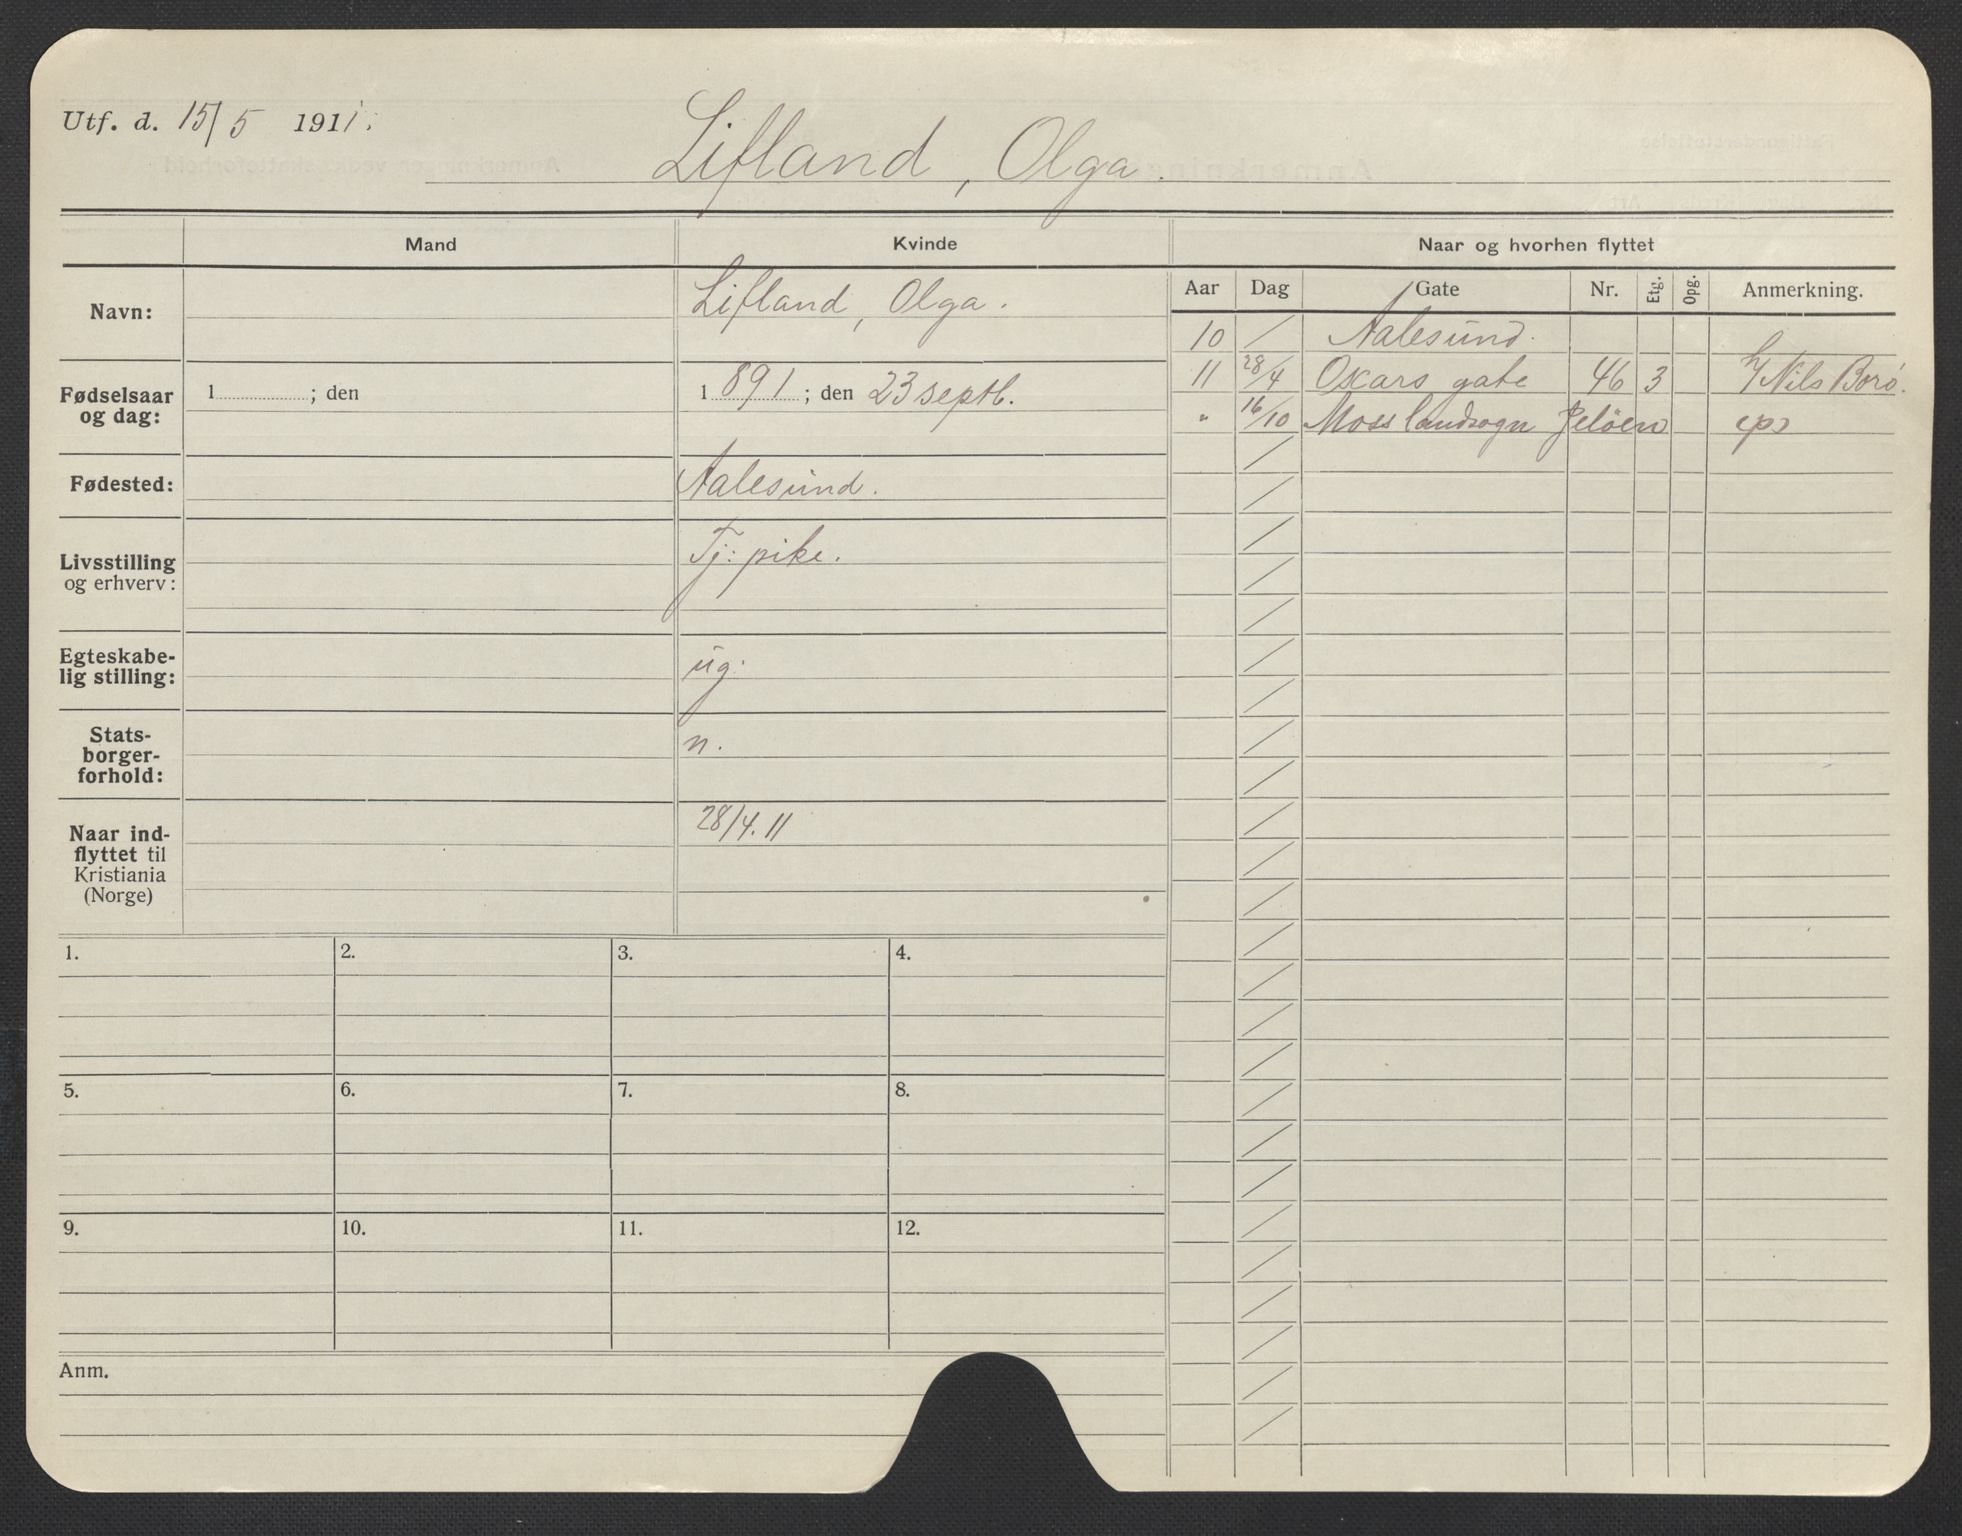 Utf. d. 15/5 1911.
Lifland, Olga.
Mand Kvinde Naar og hvorhen flyttet
Aar Dag Gate Nr. Etg. Opg. Anmerkning.
Navn: Lifland, Olga.
10 / Aalesund.
11 28/4 Oscars gate 46 3 h/ Nils Borö.
" 16/10 Moss landsogn Jelöen
Fødselsaar og dag: 1 ; den 1891 ; den 23 septb.
Fødested: Aalesund.
Livsstilling og erhverv: Tj: pike.
Egteskabe-
lig stilling: ug.
Stats-
borger-
forhold: n.
Naar ind-
flyttet til
Kristiania
(Norge) 28/4.11
1. 2. 3. 4.
5. 6. 7. 8.
9. 10. 11. 12.
Anm.